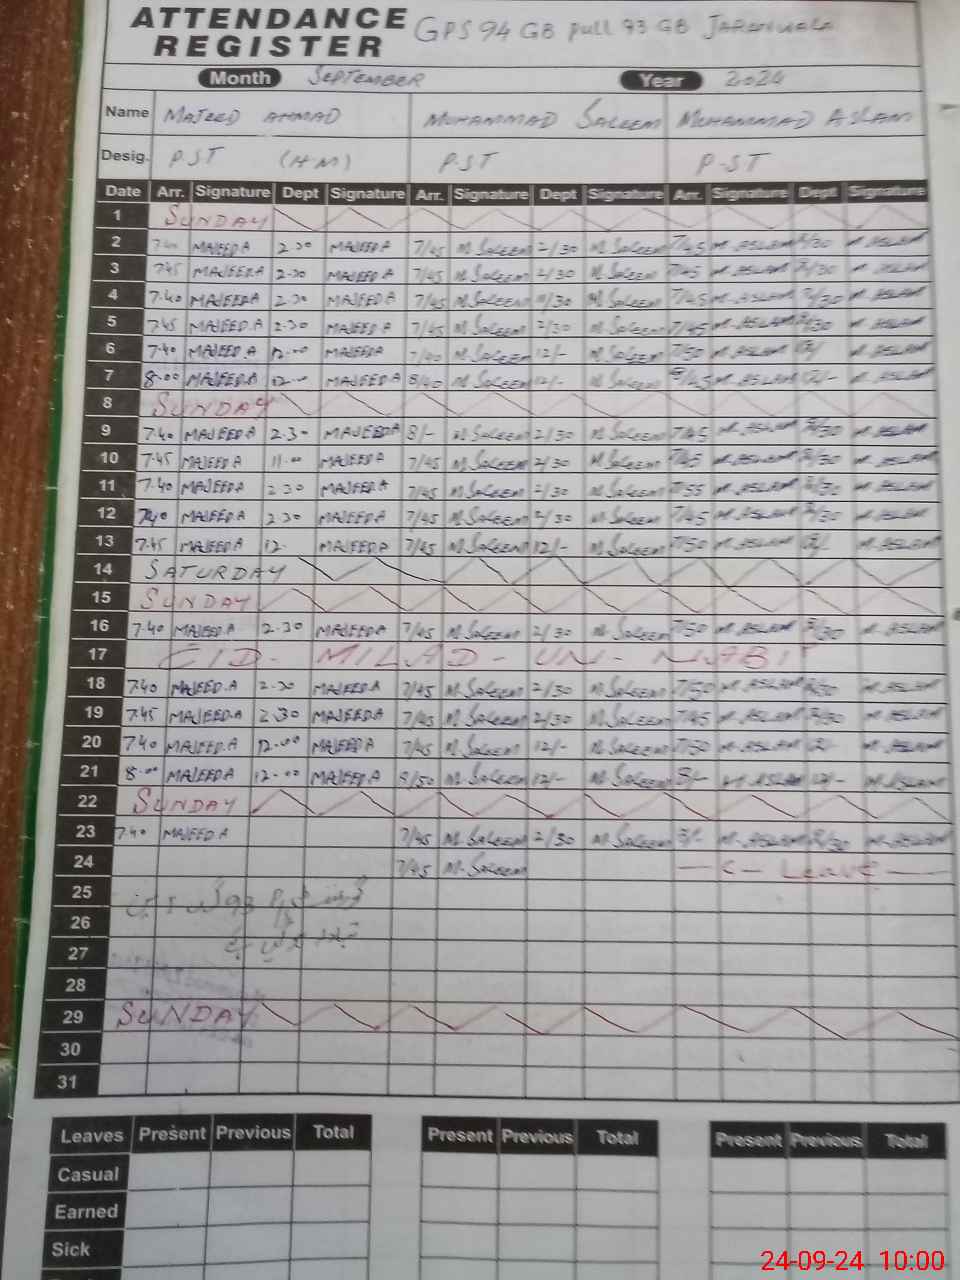 ATTENDANCE REGISTER GPS 94 GB pull 93 GB JARANWALA
Month SEPTEMBER Year 2024
Name MAJEED AHMAD MUHAMMAD SALEEM MUHAMMAD ASLAM
Desig. P.ST (HM) P.ST P-ST
Date Arr. Signature Dept Signature Arr. Signature Dept Signature Arr. Signature Dept Signature
1 SUNDAY
2 MAJEED A 2.30 MAJEED A 7/45 M. Saleem 2/30 M. Saleem 7/45 M. ASLAM 2/30 M. ASLAM
3 7.45 MAJEED.A 2.30 MAJEED A 7/45 M. Saleem 2/30 M. Saleem 7/45 M. ASLAM 2/30 M. ASLAM
4 7.40 MAJEED.A 2.30 MAJEED A 7/45 M. Saleem /30 M. Saleem 7/45 M. ASLAM 2/30 M. ASLAM
5 7.45 MAJEED.A 2.30 MAJEED A 7/45 M. Saleem 2/30 M. Saleem 7/45 M. ASLAM 2/30 M. ASLAM
6 7.40 MAJEED.A 12.00 MAJEED A 7/40 M. Saleem 12/- M. Saleem 7/50 M. ASLAM M. ASLAM
7 8.00 MAJEED.A 12.00 MAJEED A 8/40 M. Saleem 12/- M. Saleem M. ASLAM 12/- M. ASLAM
8 SUNDAY
9 7.40 MAJEED A 2.30 MAJEED A 8/- M. Saleem 2/30 M. Saleem 7/45 M. ASLAM 2/30 M. ASLAM
10 7.45 MAJEED A 11.00 MAJEED A 7/45 M. Saleem 2/30 M. Saleem 7/45 M. ASLAM 2/30 M. ASLAM
11 7.40 MAJEED A 2 30 MAJEED A 7/45 M. Saleem 2/30 M. Saleem 7/55 M. ASLAM 2/30 M. ASLAM
12 7.40 MAJEED.A 2.30 MAJEED A 7/45 M. Saleem 2/30 M. Saleem 7/45 M. ASLAM 2/30 M. ASLAM
13 7.45 MAJEED.A 12. MAJEED A 7/45 M. Saleem 12/- M. Saleem 7/50 M. ASLAM M. ASLAM
14 SATURDAY
15 SUNDAY
16 7.40 MAJEED.A 2.30 MAJEED A 7/45 M. Saleem 2/30 M. Saleem 7/50 M. ASLAM 2/30 M. ASLAM
17 EID - MILAD - UN - NABI
18 7.40 MAJEED.A 2.30 MAJEED.A 7/45 M. Saleem 2/30 M. Saleem 7/50 M. ASLAM 2/30 M. ASLAM
19 7.45 MAJEED.A 2.30 MAJEED A 7/45 M. Saleem 2/30 M. Saleem 7/45 M. ASLAM 2/30 M. ASLAM
20 7.40 MAJEED.A 12.00 MAJEED A 7/45 M. Saleem 12/- M. Saleem 7/50 M. ASLAM M. ASLAM
21 8.00 MAJEED.A 12.00 MAJEED A 8/50 M. Saleem 12/- M. Saleem 8/- M. ASLAM 12/- M. ASLAM
22 SUNDAY
23 7.40 MAJEED A 7/45 M. Saleem 2/30 M. Saleem M. ASLAM 2/30 M. ASLAM
24 7/45 M. Saleem — C - Leave —
25
26
27
28
29 SUNDAY
30
31
Leaves Present Previous Total Present Previous Total Present Previous Total
Casual
Earned
Sick
24-09-24 10:00